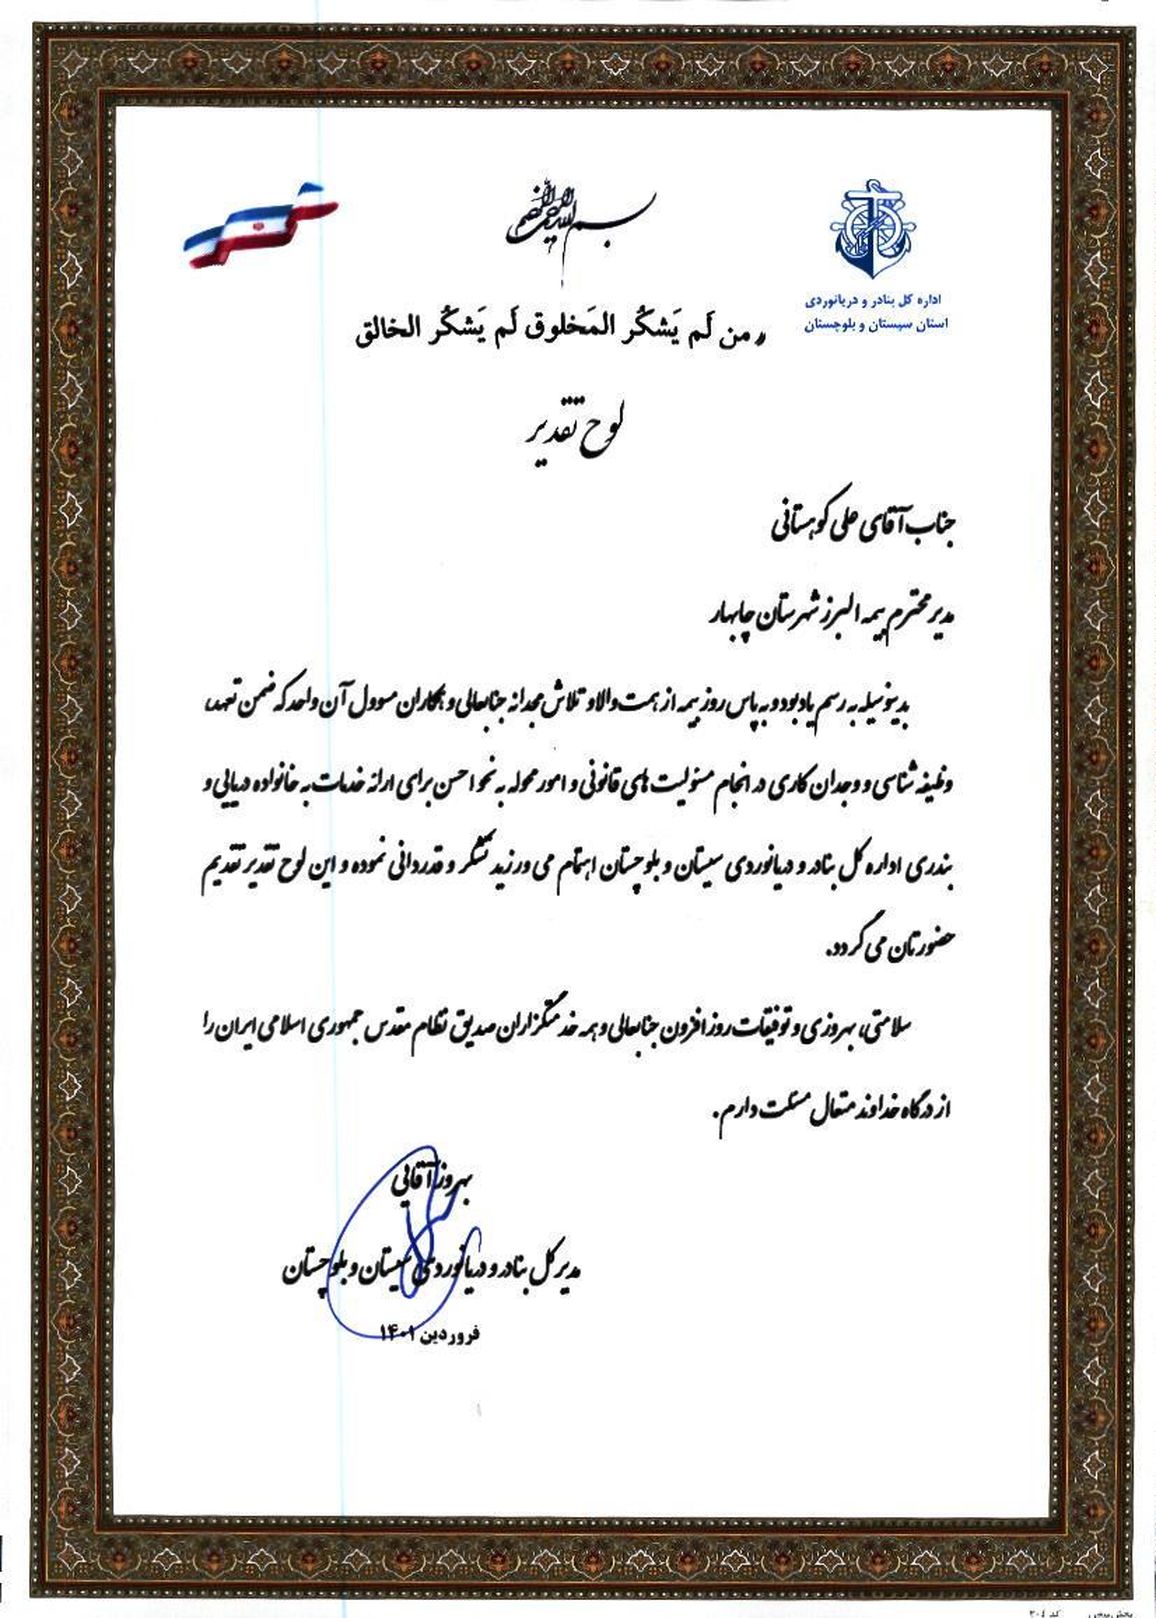 بسم الله الرحمن الرحیم
اداره کل بنادر و دریانوردی
استان سیستان و بلوچستان
من لَم یَشکُر المَخلوق لَم یَشکُر الخالق
لوح تقدیر
جناب آقای علی کوهستانی
مدیر محترم بیمه البرز شهرستان چابهار
بدینوسیله به رسم یادبود و به پاس روز بیمه از همت والا و تلاش مجدانه جنابعالی و همکاران مسوول آن واحد که ضمن تعهد،
وظیفه شناسی و وجدان کاری در انجام مسئولیت های قانونی و امور محوله به نحو احسن برای ارائه خدمات به خانواده دریایی و
بندری اداره کل بنادر و دریانوردی سیستان و بلوچستان اهتمام می ورزید تشکر و قدردانی نموده و این لوح تقدیر تقدیم
حضورتان می گردد.
سلامتی، بهروزی و توفیقات روز افزون جنابعالی و همه خدمتگزاران صدیق نظام مقدس جمهوری اسلامی ایران را
از درگاه خداوند متعال مسئلت دارم.
بهروز آقایی
مدیر کل بنادر و دریانوردی سیستان و بلوچستان
فروردین ۱۴۰۱
کد ۲۰۴